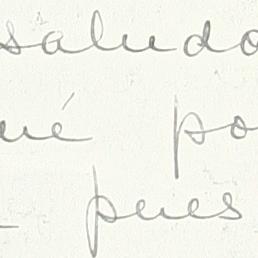 saludo
ué po
pues